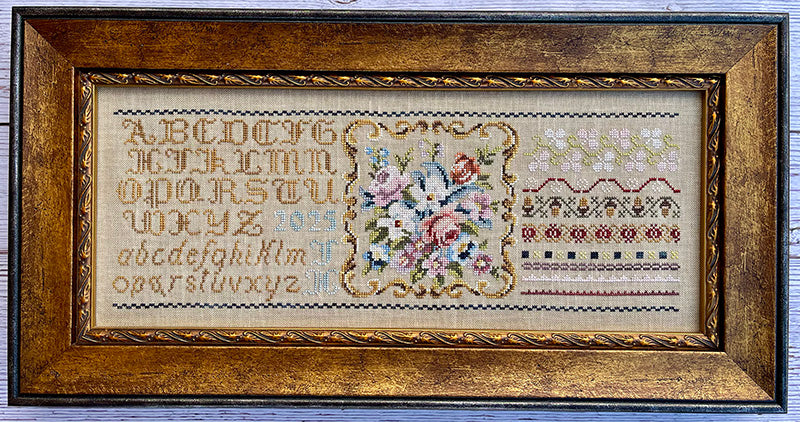 ABCDEFG
HIKLMN
OPQRSTU
WXYZ 2025
abcdefghiklm T
opqrstuvxyz